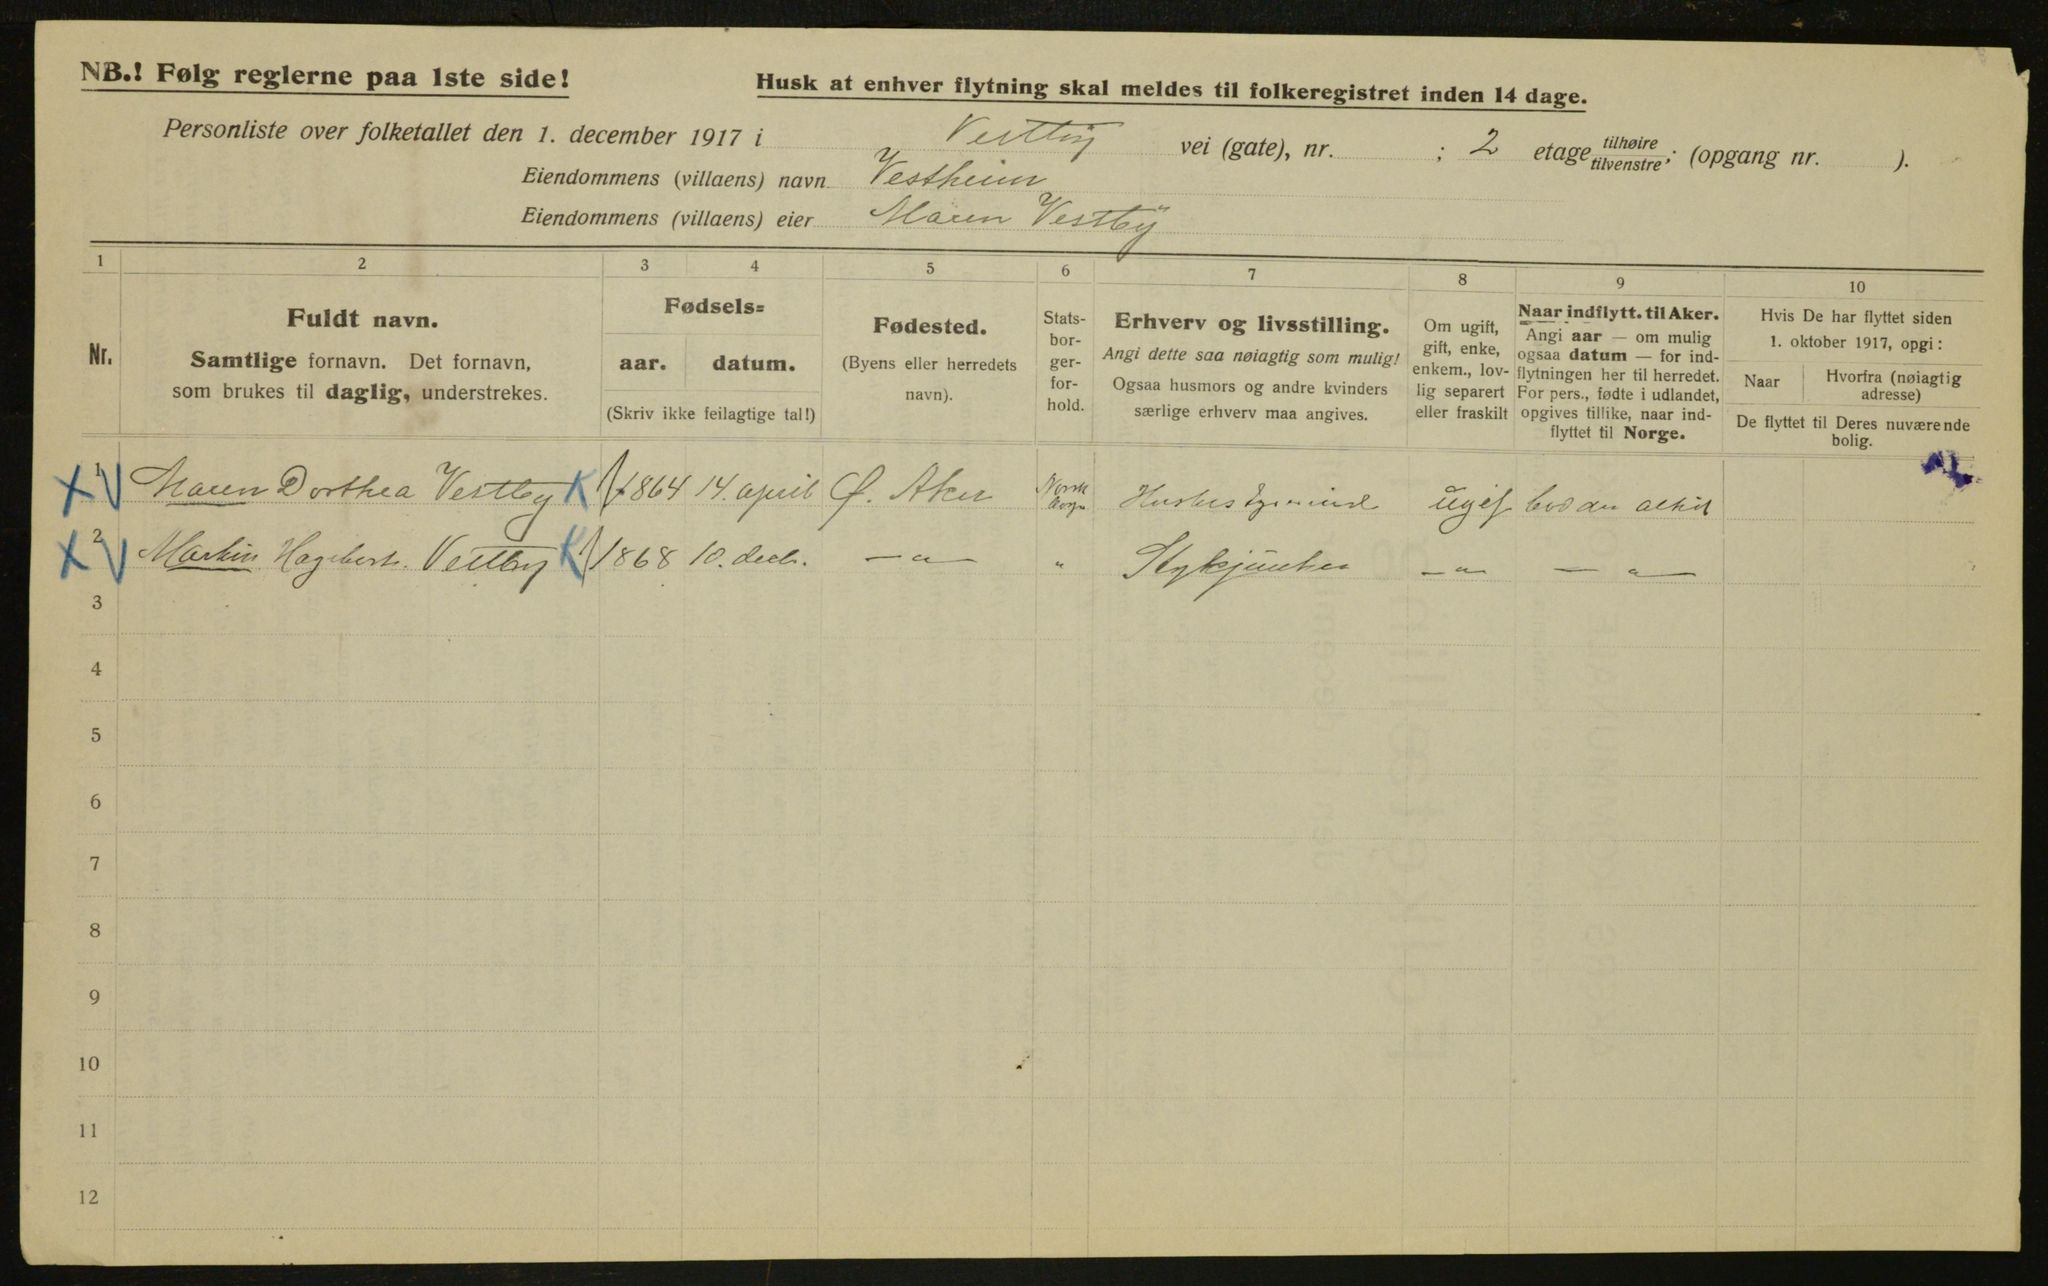 NB.! Følg reglerne paa 1ste side!
Husk at enhver flytning skal meldes til folkeregistret inden 14 dage.
Personliste over folketallet den 1. december 1917 i Vestby vei (gate), nr. ; 2 etage tilhøire tilvenstre; (opgang nr. ).
Eiendommens (villaens) navn Vestheim
Eiendommens (villaens) eier Maren Vestby
1 2 3 4 5 6 7 8 9 10
Nr.
Fuldt navn.
Samtlige fornavn. Det fornavn,
som brukes til daglig, understrekes.
Fødsels=
aar. datum.
(Skriv ikke feilagtige tal!)
Fødested.
(Byens eller herredets
navn).
Stats-
bor-
ger-
for-
hold.
Erhverv og livsstilling.
Angi dette saa nøiagtig som mulig!
Ogsaa husmors og andre kvinders
særlige erhverv maa angives.
Om ugift,
gift, enke,
enkem., lov-
lig separert
eller fraskilt
Naar indflytt. til Aker.
Angi aar — om mulig
ogsaa datum — for ind-
flytningen her til herredet.
For pers., fødte i udlandet,
opgives tillike, naar ind-
flyttet til Norge.
Hvis De har flyttet siden
1. oktober 1917, opgi:
Naar
Hvorfra (nøiagtig
adresse)
De flyttet til Deres nuværende
bolig.
X V 1 Maren Dorthea Vestby K 1864 14. april Ø. Aker Norsk ugif bod der altid
X V 2 Martin Hagbert Vestby K 1868 10. decb. — " — " — " — — " —
3
4
5
6
7
8
9
10
11
12